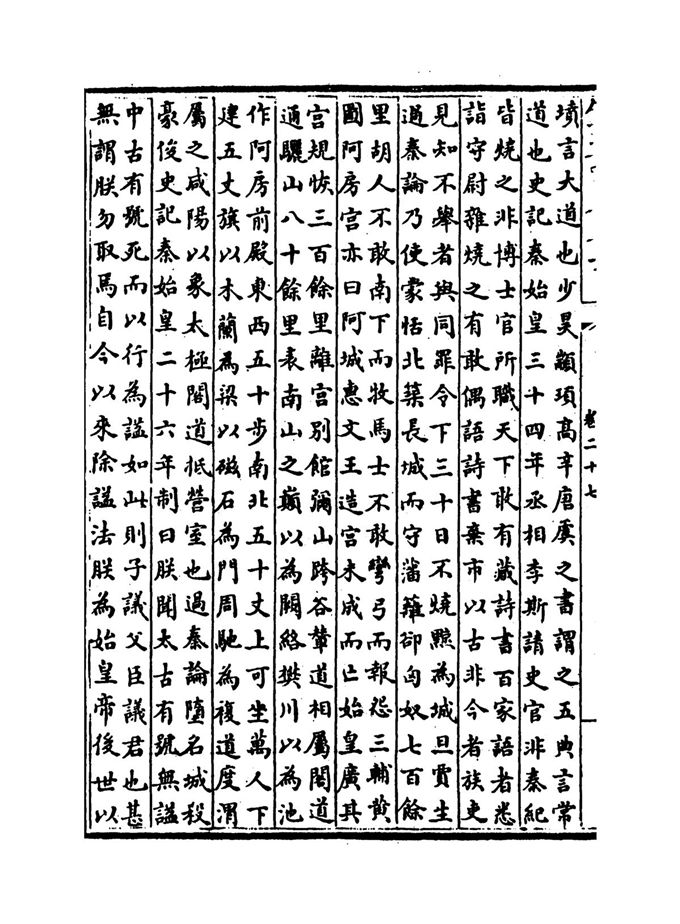 墳言大道也少昊顓頊高辛唐虞之書謂之五典言常
道也史記秦始皇三十四年丞相李斯請史官非秦紀
皆燒之非博士官所職天下敢有藏詩書百家語者悉
詣守尉雜燒之有敢偶語詩書棄市以古非今者族吏
見知不舉者與同罪令下三十日不燒黥為城旦賈生
過秦論乃使蒙恬北築長城而守藩籬卻匈奴七百餘
里胡人不敢南下而牧馬士不敢彎弓而報怨三輔黄
圖阿房宫亦曰阿城惠文王造宫未成而亡始皇廣其
宫規恢三百餘里離宫别館彌山跨谷輦道相屬閣道
通驪山八十餘里表南山之巔以為闕絡樊川以為池
作阿房前殿東西五十步南北五十丈上可坐萬人下
建五丈旗以木蘭為梁以磁石為門周馳為複道度渭
屬之咸陽以象太極閣道抵營室也過秦論墮名城殺
豪俊史記秦始皇二十六年制曰朕聞太古有號無謚
中古有號死而以行為謚如此則子議父臣議君也甚
無謂朕勿取焉自今以來除謚法朕為始皇帝後世以
卷二十七